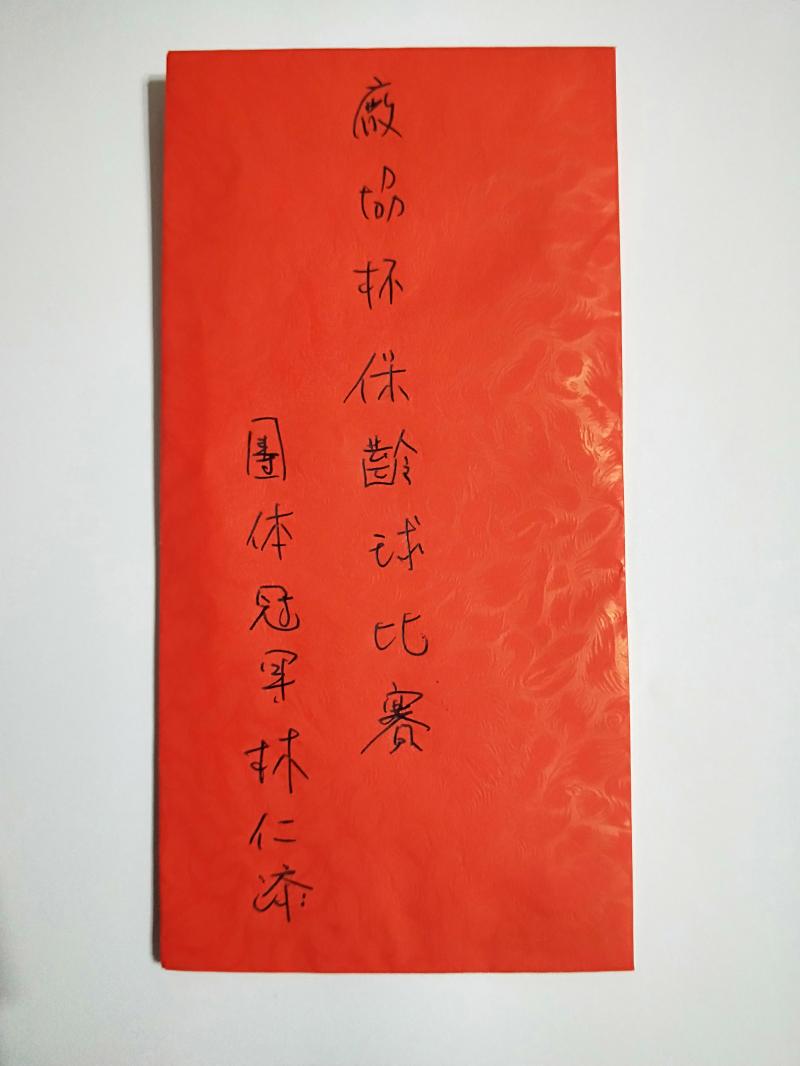 廠協杯保齡球比賽
團体冠軍林仁添